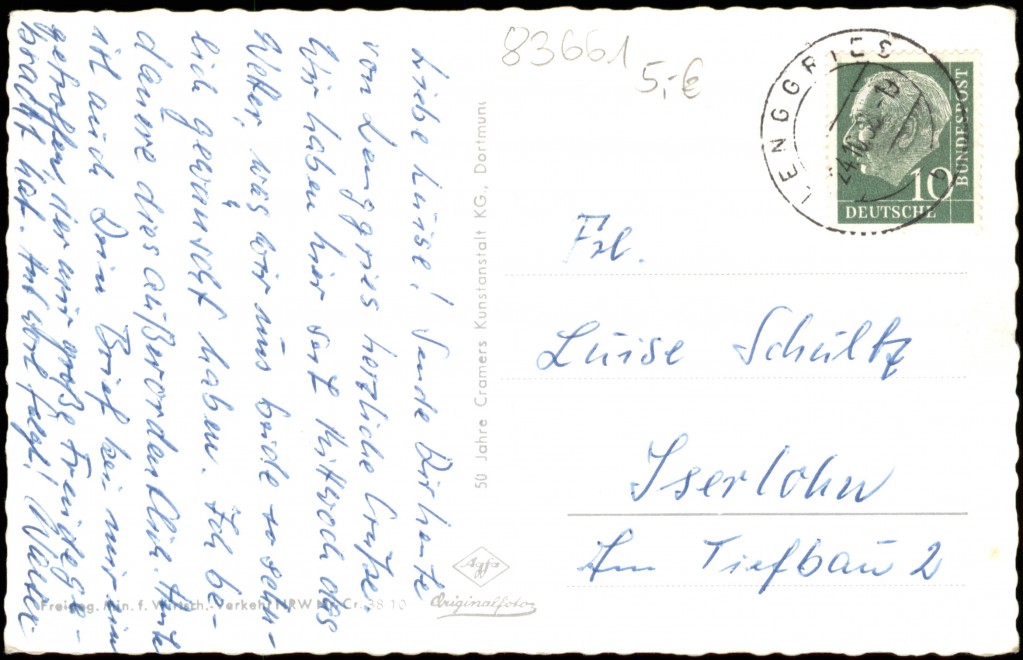 Liebe Luise! Sende Dir heute
von Lenggries herzliche Grüße
Wir haben hier seit Mittwoch das
Wetter, was wir uns beide so sehn-
lich gewünscht haben. Ich be-
dauere dies außerordentlich. Heute
ist auch Dein Brief bei mir ein
getroffen, der mir große Freude ge-
bracht hat. Auf
50 Jahre Cramers Kunstanstalt KG., Dortmund
Freigeg. Min. f. Wirtsch. Verkehr NRW Cr. 38 10
Agfa
Originalfoto
83661
5,-€
LENGGRIES
24.10.
BUNDESPOST
10
DEUTSCHE
Frl.
Luise Schultz
Iserlohn
Am Tiefbau 2